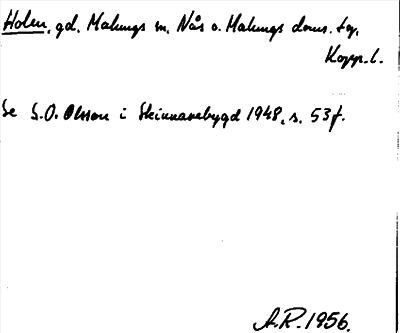 Holen, gd. Malungs m. Nås o. Malungs doms. fg.
Kopp. l.
Se S.O. Olsson i Skinnarebygd 1948, s. 53f.
A.R. 1956.